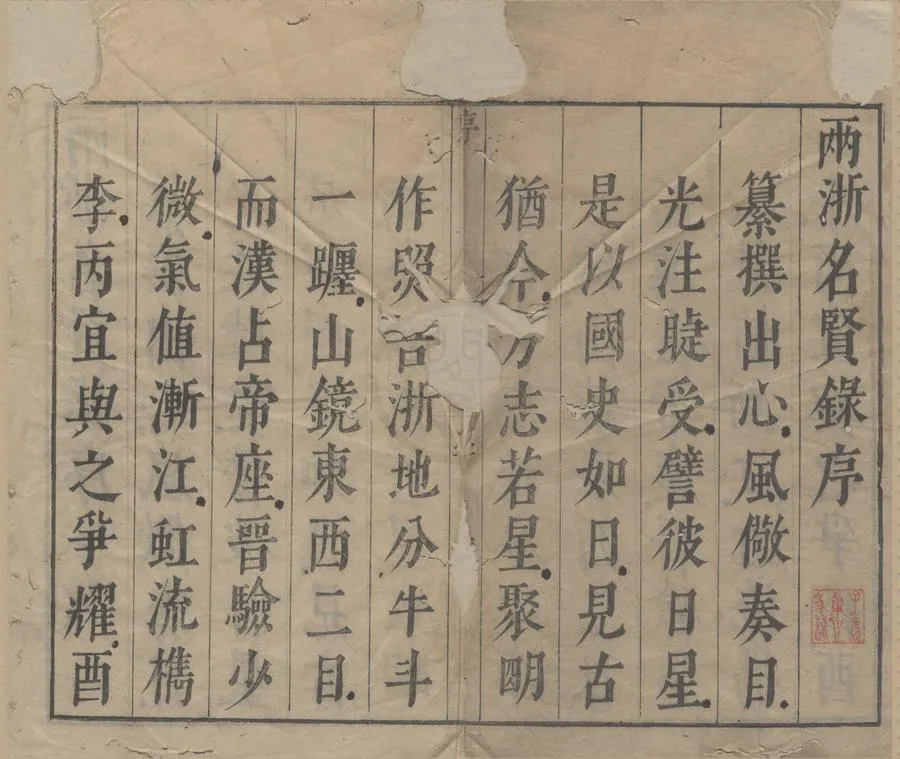 兩浙名賢錄序
纂撰出心風儆奏目
光注睫受譬彼日星
是以國史如日見古
猶今方志若星聚明
作照吾浙地分牛斗
一躔山鏡東西二目
而漢占帝座晉驗少
微氣值漸江虹流檇
李丙宜與之爭耀酉
序